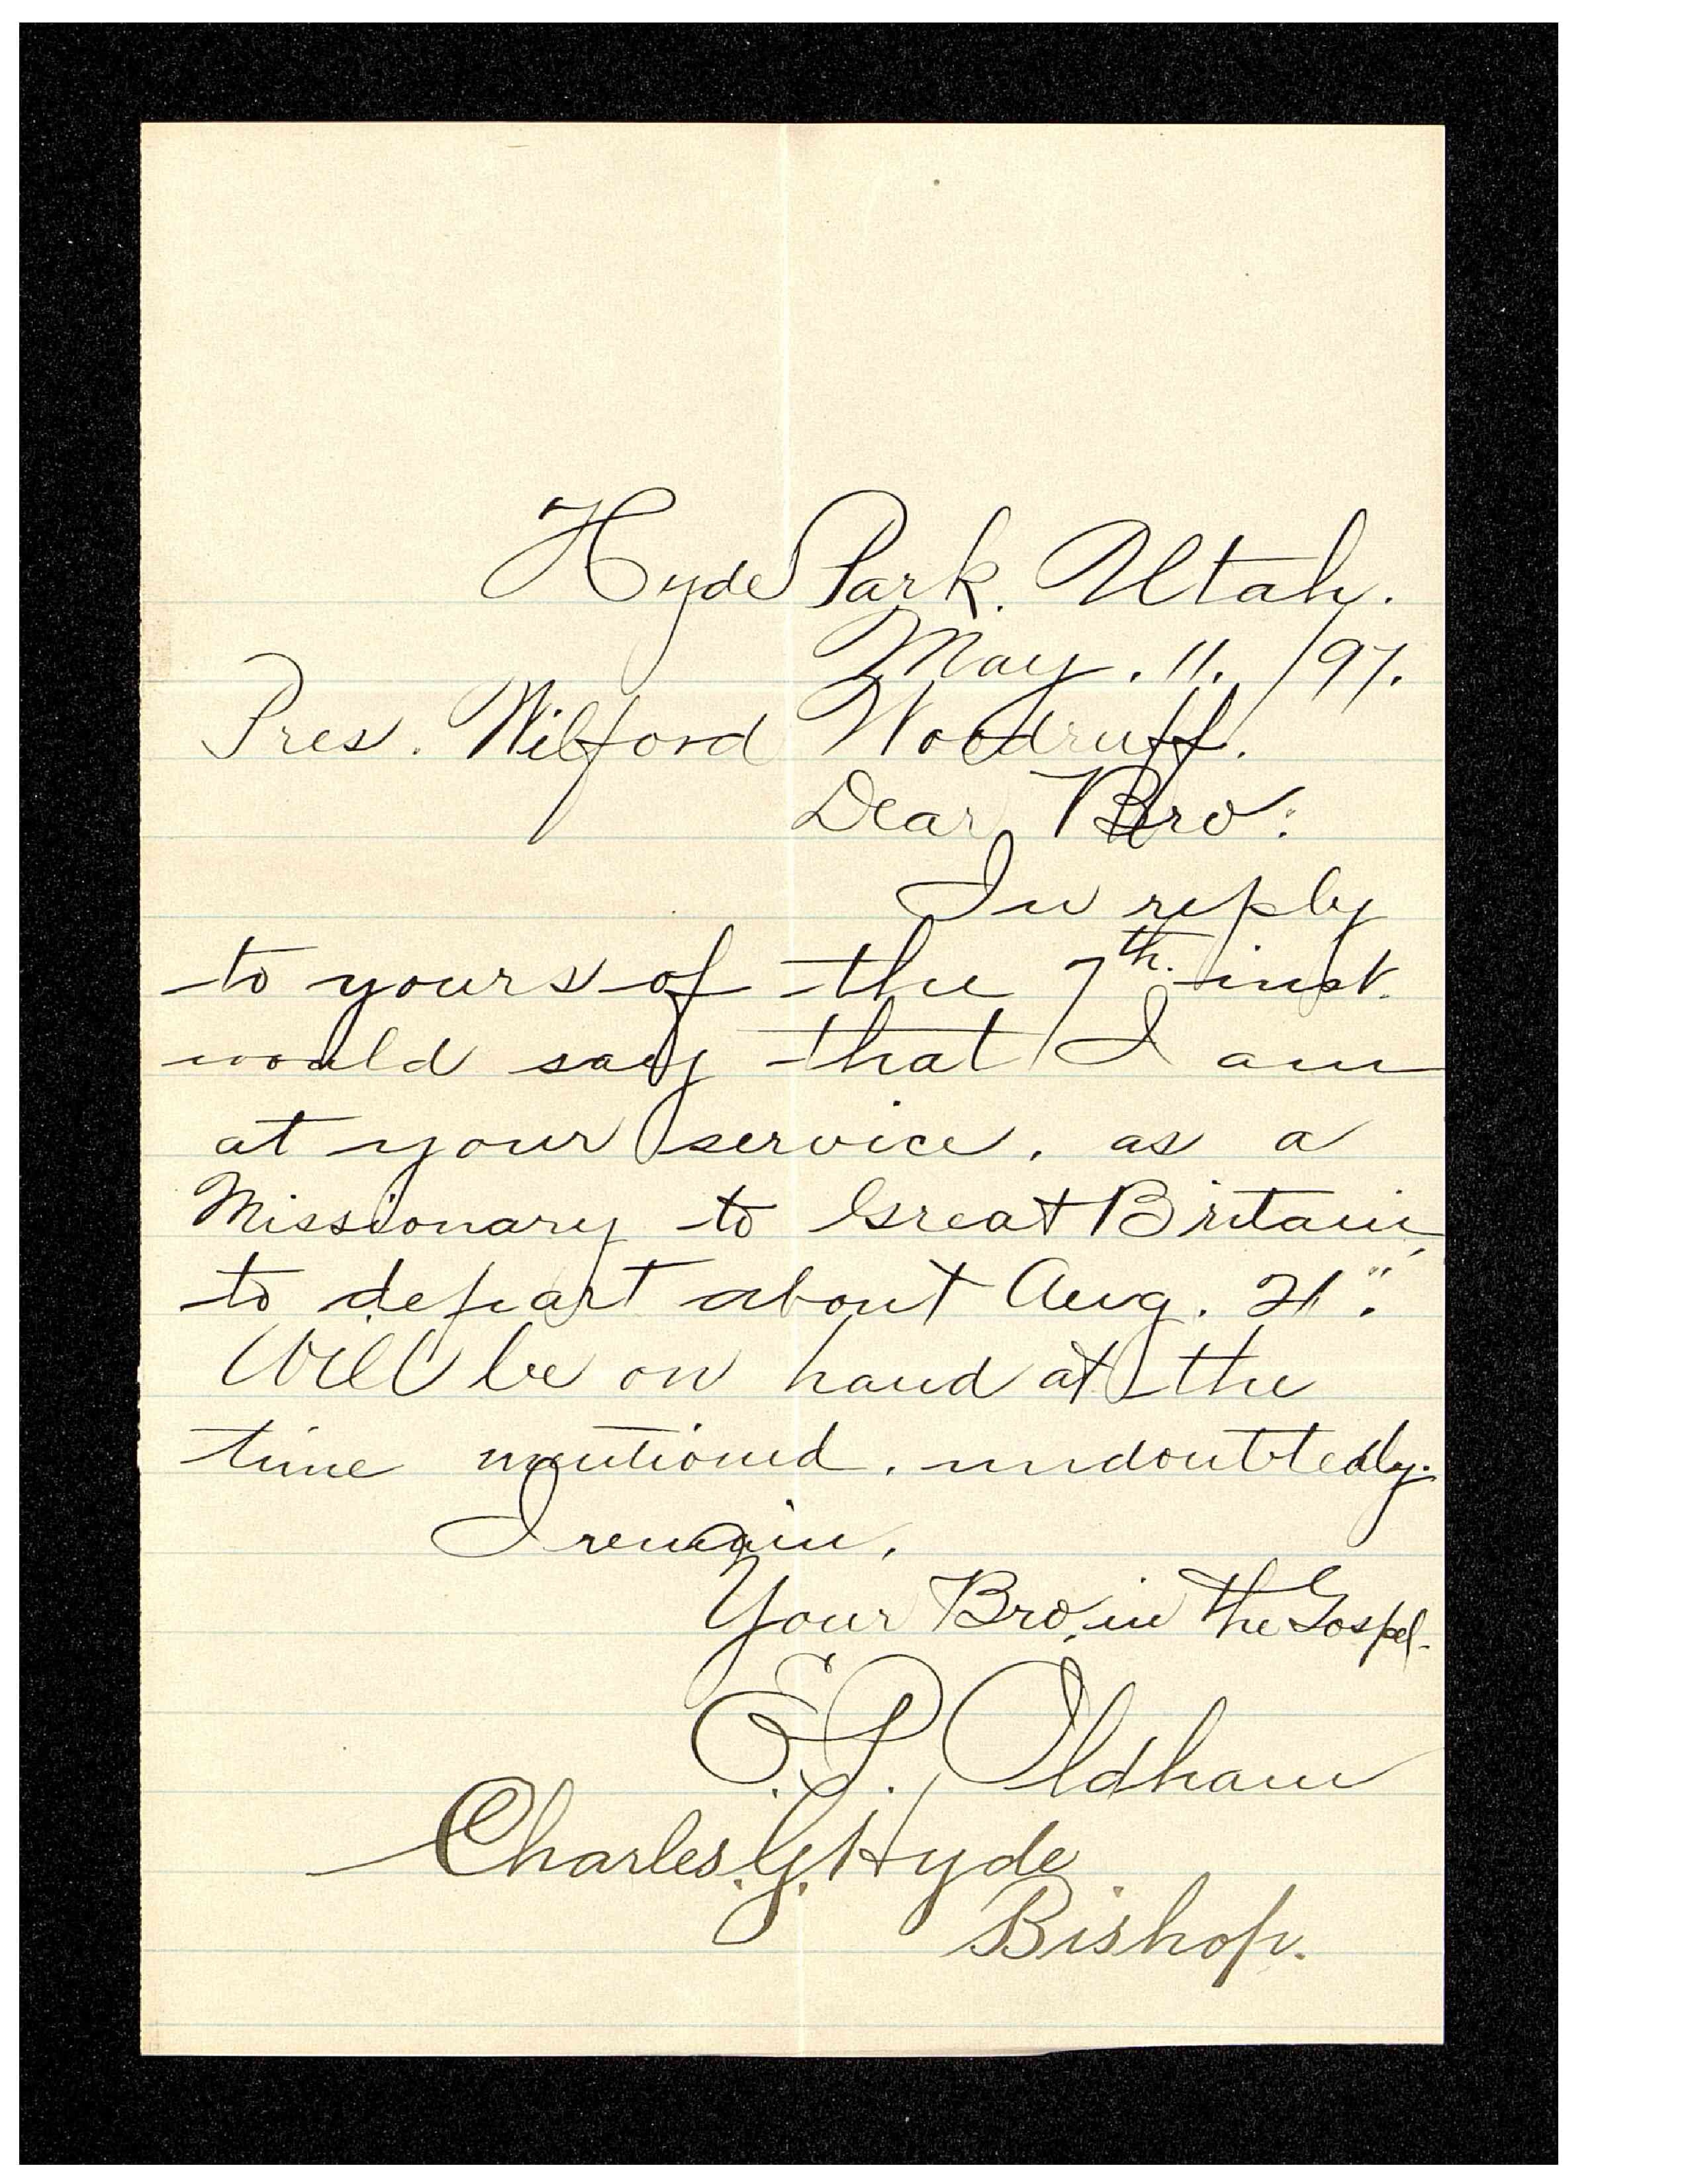 Hyde Park. Utah.
May. 11. /97.
Pres. Wilford Woodruff.
Dear Bro:
In reply
to yours of the 7th. inst.
would say that I am
at your service, as a
Missionary to Great Britain,
to depart about Aug. 21".
Will be on hand at the
time mentioned, undoubtedly.
I remain,
Your Bro, in the Gospel.
E. P. Oldham
Charles. G. Hyde
Bishop.